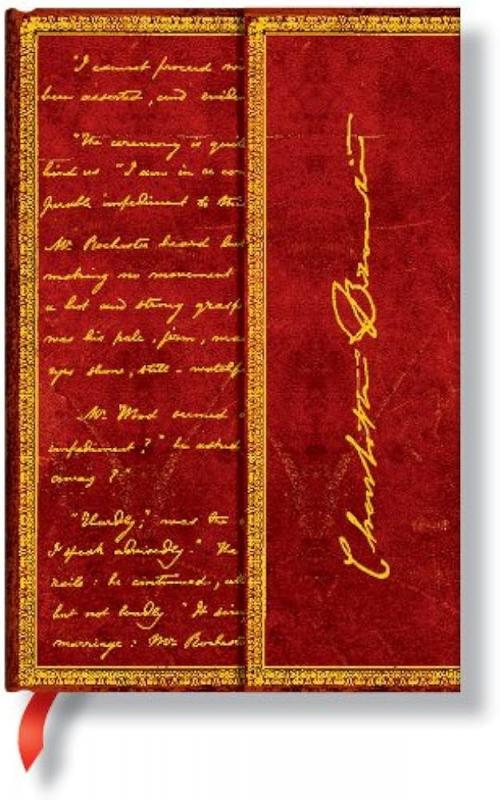 "I cannot proceed
been asserted, and
"The ceremony is
hind us "I am in a
Mr. Rochester heard
making no movement
a hot and strong grasp
was his pale, firm,
eye shone, still -
Mr. Wood seemed
impediment?" he asked
away?"
"Hardly," was the
I speak advisedly." The
rails: he continued,
but not loudly "It
marriage: Mr Rochest
Charlotte Brontë